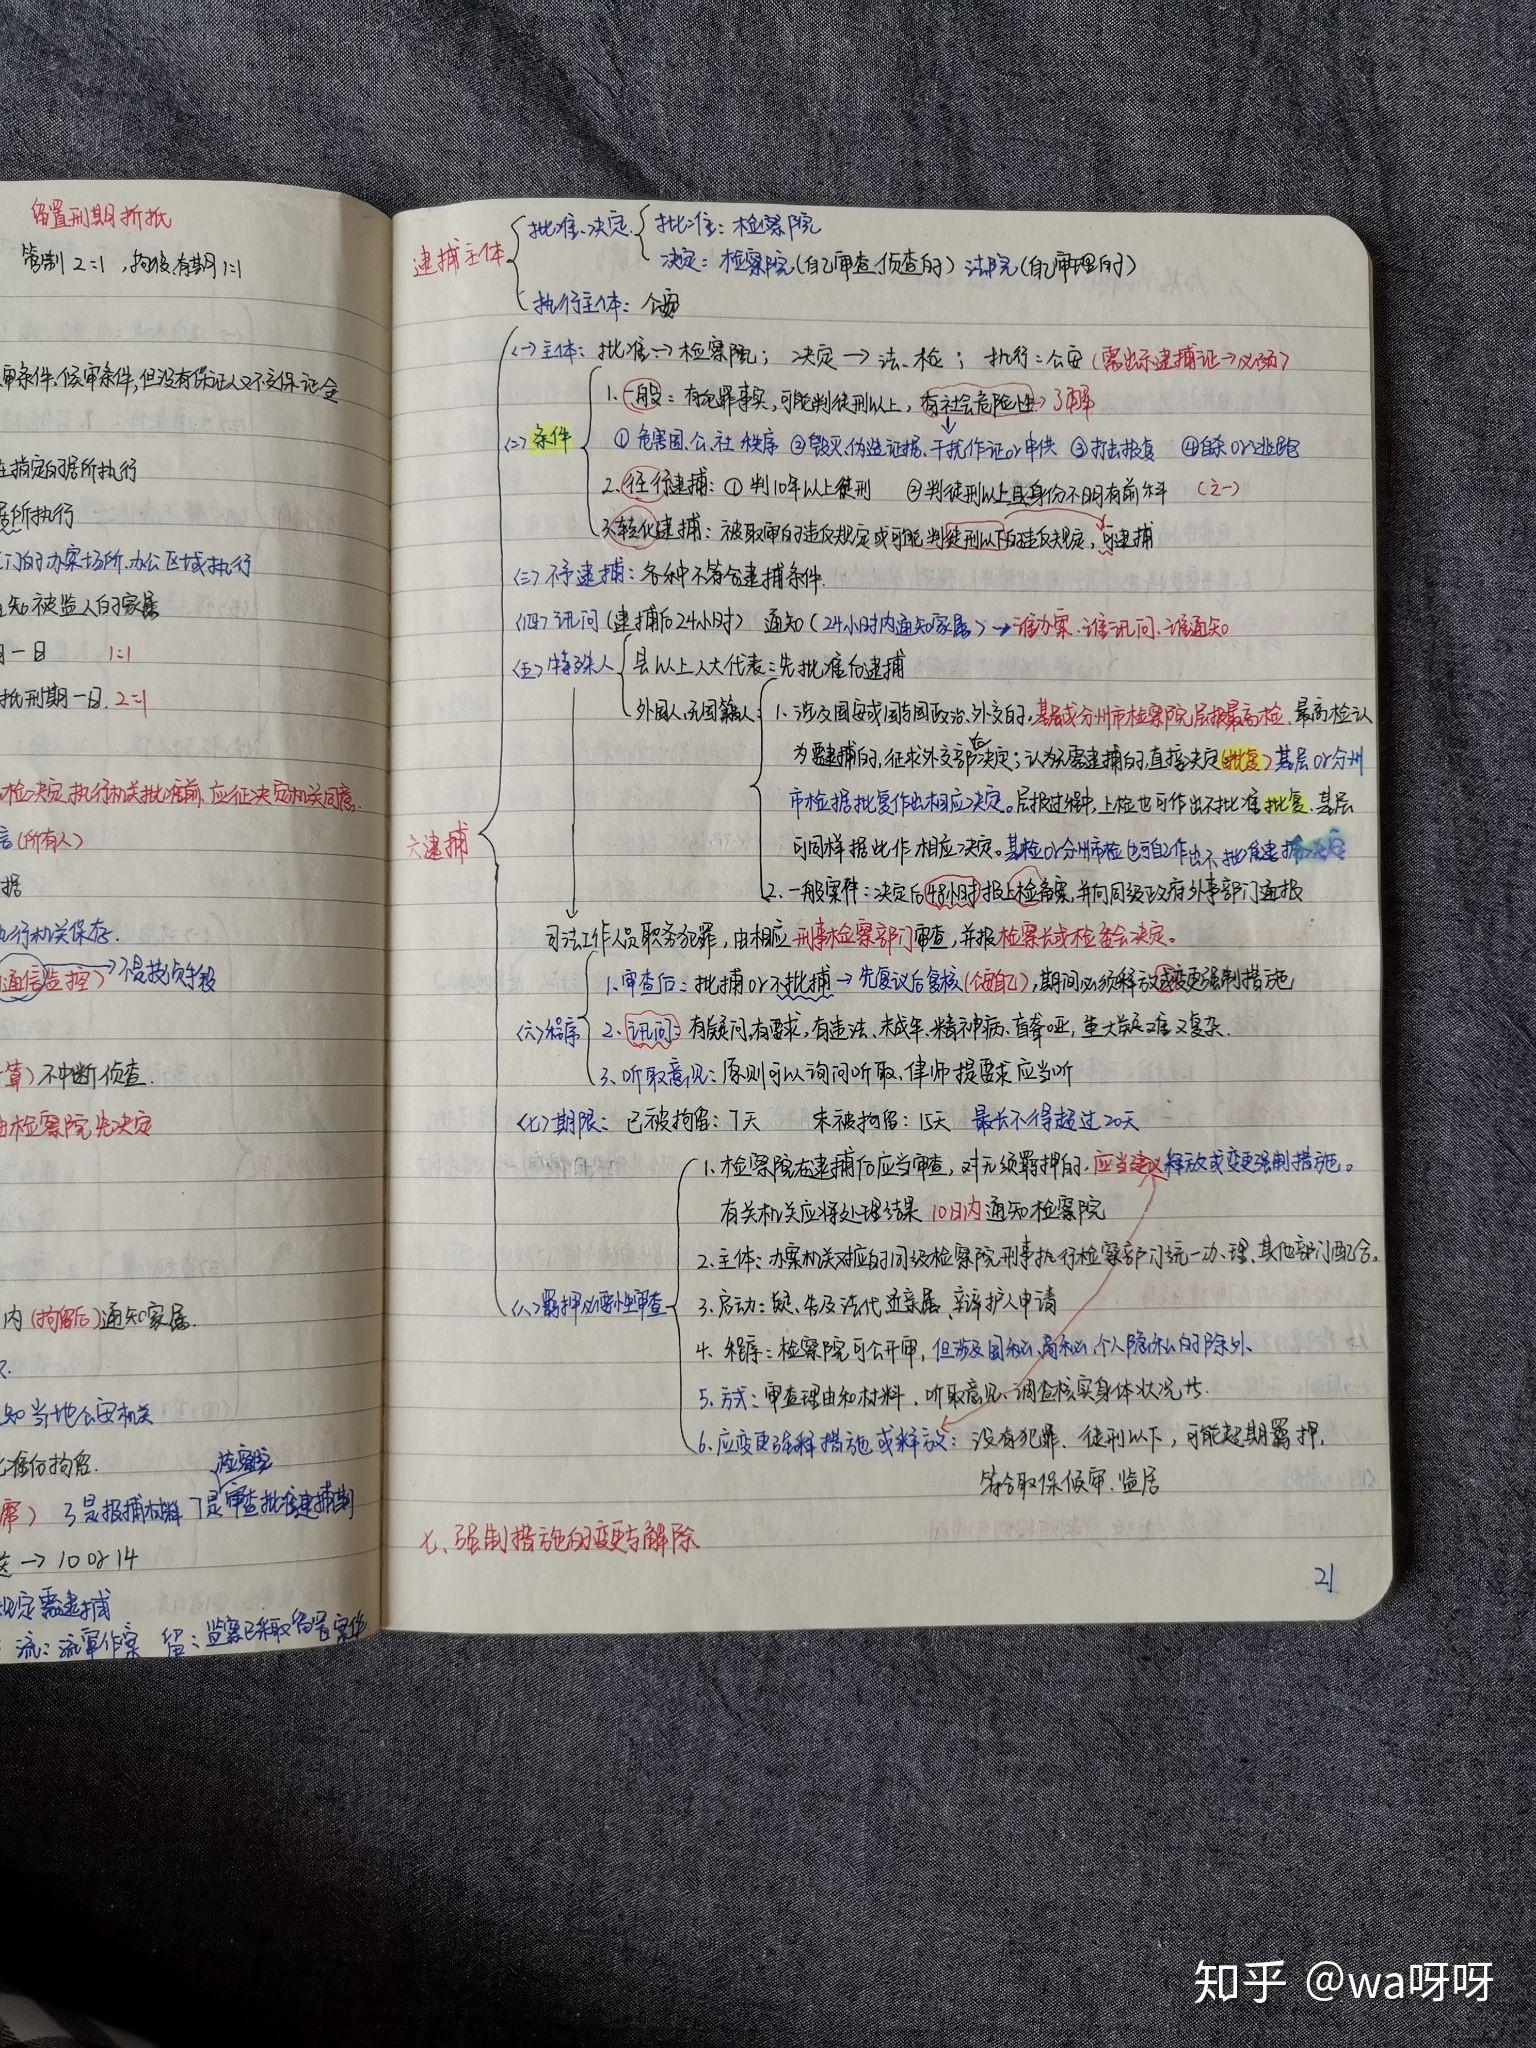 留置刑期折抵
管制2=1，拘役、有期1=1
审条件、候审条件,但没有保证人又不交保证金
在指定的居所执行
居所执行
门的办案场所、办公区域执行
知被监人的家属
一日 1=1
抵刑期一日. 2=1
检决定,执行机关批准前,应征决定机关同意.
(所有人)
据
执行机关保存.
通信监控)→不是技侦手段
算)不中断侦查.
由检察院先决定
内(拘留后)通知家属.
知当地公安机关
准后拘留.
检察院
3是报捕材料 7是审查批准逮捕期
→10or14
规定需逮捕
流:流窜作案 留:监察已采取留置案件
逮捕主体
批准、决定
批准:检察院
决定:检察院(自己审查侦查的) 法院(自己审理的)
执行主体:公安
六逮捕
(一)主体:批准→检察院; 决定→法、检; 执行:公安(需出示逮捕证→必须)
(二)条件
1.一般:有犯罪事实,可能判徒刑以上,有社会危险性→了解
①危害国、公、社秩序②毁灭、伪造证据、干扰作证or串供③打击报复④自杀or逃跑
2.径行逮捕:①判10年以上徒刑 ②判徒刑以上且身份不明、有前科 (之一)
3.转化逮捕:被取审的违反规定或可能判徒刑以下的违反规定,可逮捕
(三)不予逮捕:各种不符合逮捕条件.
(四)讯问(逮捕后24小时) 通知(24小时内通知家属)→谁办案、谁讯问、谁通知
(五)特殊人
县以上人大代表:先批准后逮捕
外国人、无国籍人
1.涉及国安或国与国政治、外交的,基层或分州市检察院层报最高检,最高检认
为需逮捕的,征求外交部后决定;认为无需逮捕的,直接决定(批复)基层or分州
市检据批复作出相应决定。层报过程中,上检也可作出不批准批复,基层
可同样据此作相应决定。基检or分州市检也可自己作出不批准逮捕决定
2.一般案件:决定后48小时报上检备案,并向同级政府外事部门通报
司法工作人员职务犯罪,由相应刑事检察部门审查,并报检察长或检委会决定。
(六)程序
1.审查后:批捕or不批捕→先复议后复核(公安自己),期间必须释放或变更强制措施
2.讯问:有疑问,有要求,有违法、未成年、精神病、盲聋哑,重大疑难又复杂.
3.听取意见:原则可以询问听取,律师提要求应当听
(七)期限:已被拘留:7天 未被拘留:15天 最长不得超过20天
(八)羁押必要性审查
1.检察院在逮捕后应当审查,对无须羁押的,应当建议释放或变更强制措施。
有关机关应将处理结果10日内通知检察院
2.主体:办案机关对应的同级检察院刑事执行检察部门统一办理,其他部门配合。
3.启动:疑、告及法代、近亲属、辩护人申请
4.程序:检察院可公开审,但涉及国秘、商秘、个人隐私的除外.
5.方式:审查理由和材料、听取意见、调查核实身体状况等.
6.应变更强释措施或释放:没有犯罪、徒刑以下,可能超期羁押,
符合取保候审、监居
七、强制措施的变更与解除
21
知乎 @wa呀呀